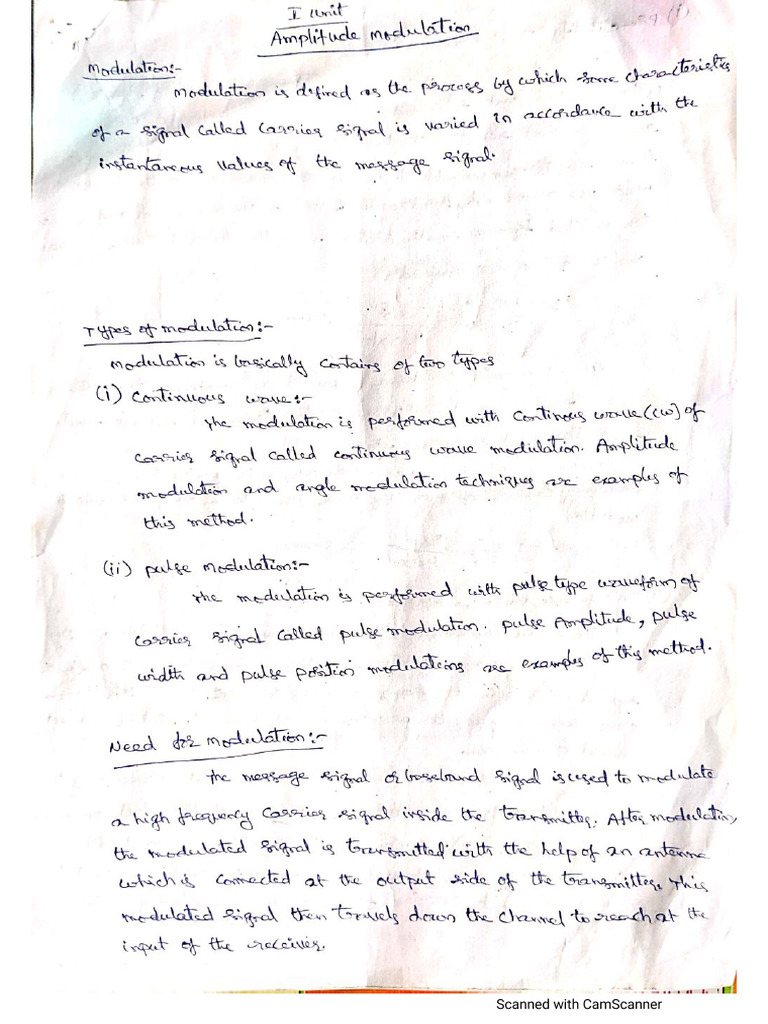 I Unit
Amplitude modulation
Modulation:-
Modulation is defined as the process by which some characteristics
of a signal called carrier signal is varied in accordance with the
instantaneous values of the message signal.
Types of modulation:-
Modulation is basically contains of two types
(i) Continuous wave:-
The modulation is performed with Continous wave (CW) of
carrier signal called continuous wave modulation. Amplitude
modulation and angle modulation techniques are examples of
this method.
(ii) pulse modulation:-
The modulation is performed with pulse type waveform of
carrier signal called pulse modulation. pulse Amplitude, pulse
width and pulse position modulations are examples of this method.
Need for modulation:-
The message signal or baseband signal is used to modulate
a high frequency carrier signal inside the transmitter. After modulation,
the modulated signal is transmitted with the help of an antenna
which is connected at the output side of the transmitter. This
modulated signal then travels down the channel to reach at the
input of the receiver.
Scanned with CamScanner